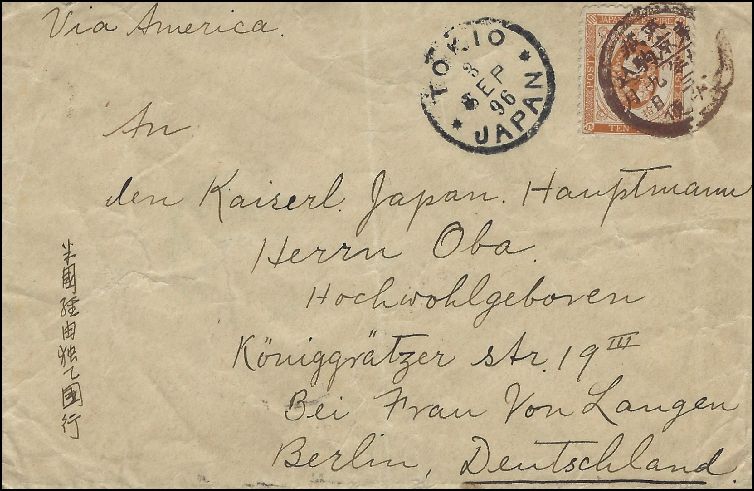 Via America.
TOKIO
8
SEP
96
JAPAN
JAPANESE EMPIRE
POST
TEN
An
den Kaiserl. Japan. Hauptmann
Herrn Oba.
Hochwohlgeboren
Königgrätzer str. 19 III
Bei Frau Von Langen
Berlin, Deutschland.
米國経由独乙國行